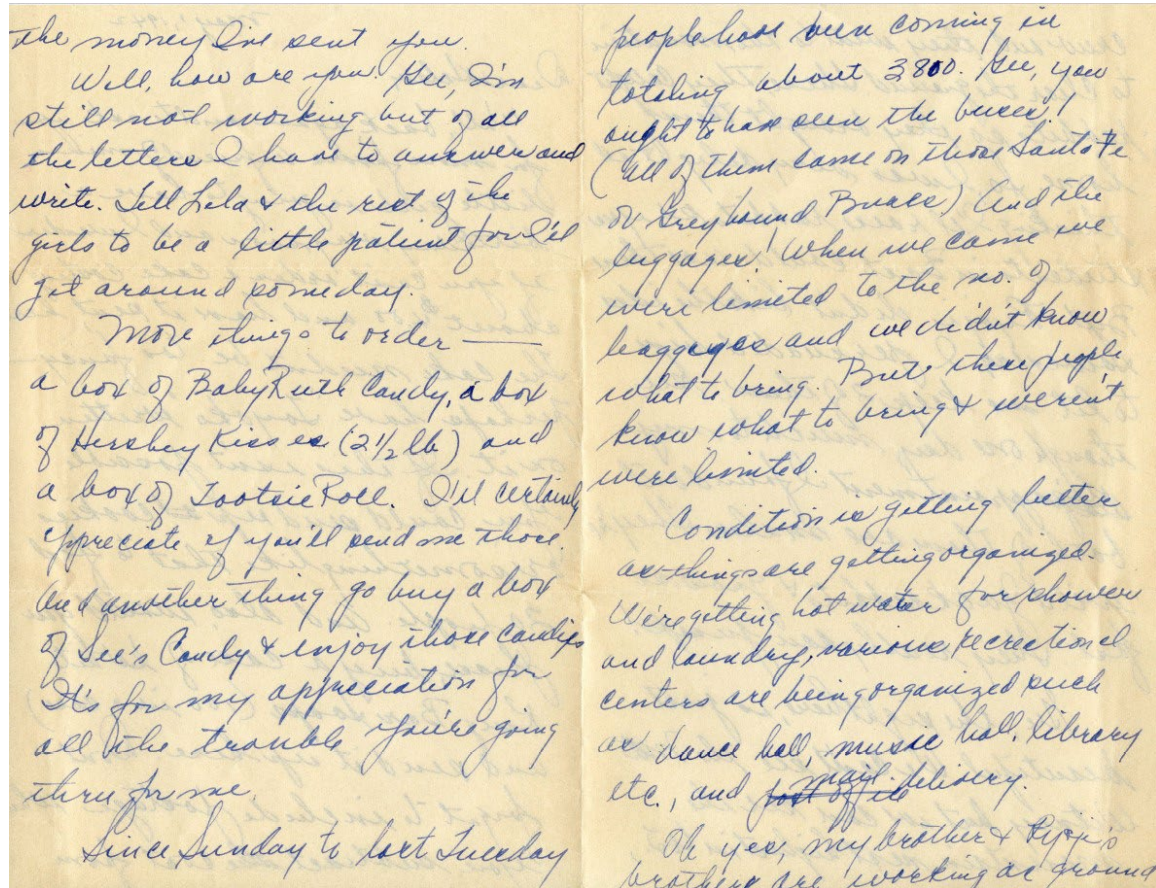 the money I've sent you.
Well, how are you. Gee, I'm
still not working but of all
the letters I have to answer and
write. Tell Lila & the rest of the
girls to be a little patient for I'll
get around someday.
More things to order —
a box of Baby Ruth Candy, a box
of Hershey Kisses (2½ lb) and
a box of Tootsie Roll. I'll certainly
appreciate if you'll send me those.
And another thing go buy a box
of See's Candy & enjoy those candies
It's for my appreciation for
all the trouble you're going
thru for me.
Since Sunday to last Tuesday
people have been coming in
totaling about 3800. Gee, you
ought to have seen the buses!
(all of them came on those Santa Fe
or Greyhound Buses) And the
luggages! When we came we
were limited to the no. of
baggages and we didn't know
what to bring. But these people
know what to bring & weren't
were limited.
Condition is getting better
as things are getting organized.
We're getting hot water for shower
and laundry, various recreational
centers are being organized such
as dance hall, music hall, library
etc., and post office mail delivery.
Oh yes, my brother & 's
brothers are working as ground